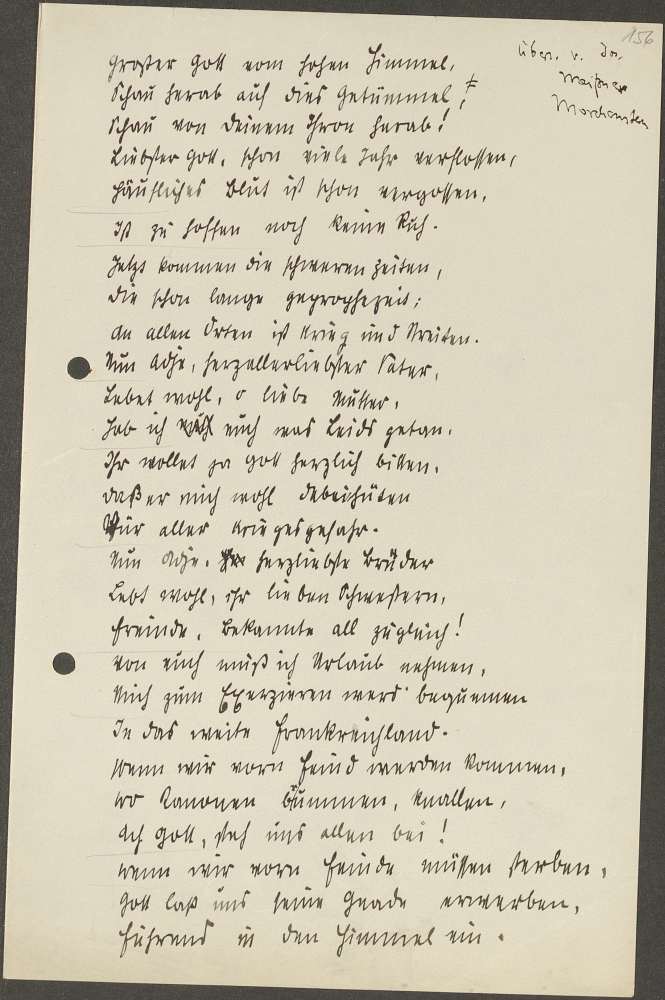 156
über. v. Jos.
Meißner
Großer Gott vom hohen Himmel,
Schau herab auf dies Getümmel,
Schau von deinem Thron herab!
Liebster Gott, schon viele Jahr verflossen,
häufliches Blut ist schon vergossen,
Ist zu hoffen noch keine Ruh.
Jetzt kommen die schweren Zeiten,
die schon lange geprophezeit;
an allen Orten ist Krieg und Streiten.
Nun Adje, herzallerliebster Vater,
Lebet wohl, o liebe Mutter,
Hab ich euch was Leids getan.
Ihr wollet ja Gott herzlich bitten,
daß er mich wohl dabei hüten
Für aller Kriegesgefahr.
Nun Adje, herzliebste Brüder
Lebt wohl, ihr lieben Schwestern,
Freunde, Bekannte all zugleich!
von euch muß ich Urlaub nehmen,
Mich zum Exerzieren werd' bequemen
In das weite Frankreichland.
Wenn wir vorn Feind werden kommen,
wo Kanonen brummen, knallen,
Ach Gott, steh uns allen bei!
wenn wir vorn Feinde müssen sterben,
Gott laß uns seine Gnade erwerben,
Führend in den Himmel ein.